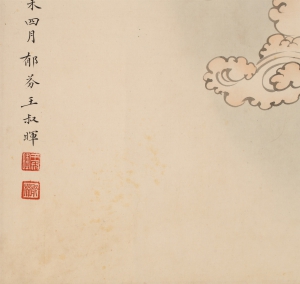 未四月郁芬王叔暉